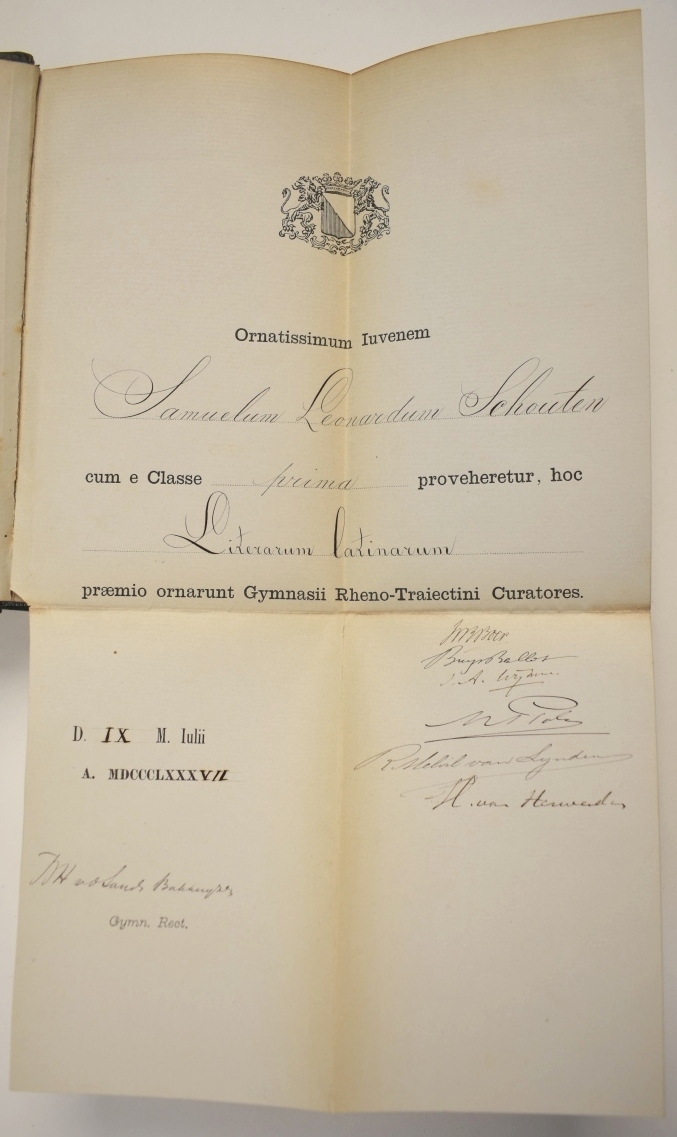 Ornatissimum Iuvenem
Samuelum Leonardum Schouten
cum e Classe prima proveheretur, hoc
Literarum latinarum
præmio ornarunt Gymnasii Rheno-Traiectini Curatores.
Boer
Buys Ballot
A.
D. IX M. Iulii
A. MDCCCLXXXVII
R. Melvil van Lynden
H. van Herwerden
Gymn. Rect.